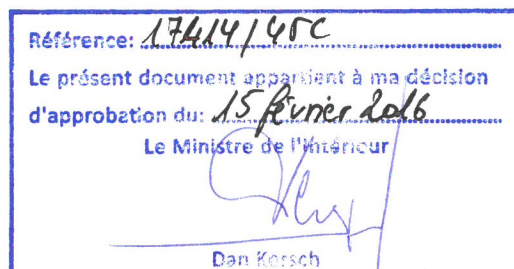 Référence: 17414/45C
Le présent document appartient à ma décision
d'approbation du: 15 février 2016
Le Ministre de l'Intérieur
Dan Kersch